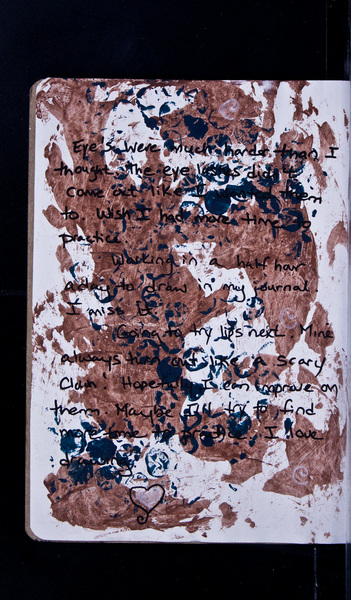 Eyes were much harder than I
thought. The eye lashes didn't
come out like I want them
to. Wish I had more time to
practice.
Working in a half hour
a day to draw in my journal.
I miss it
Going to try lips next. Mine
always turn out like a scary
Clown. Hopefully I can improve on
them. Maybe I'll try to find
more time to practice. I love
drawing